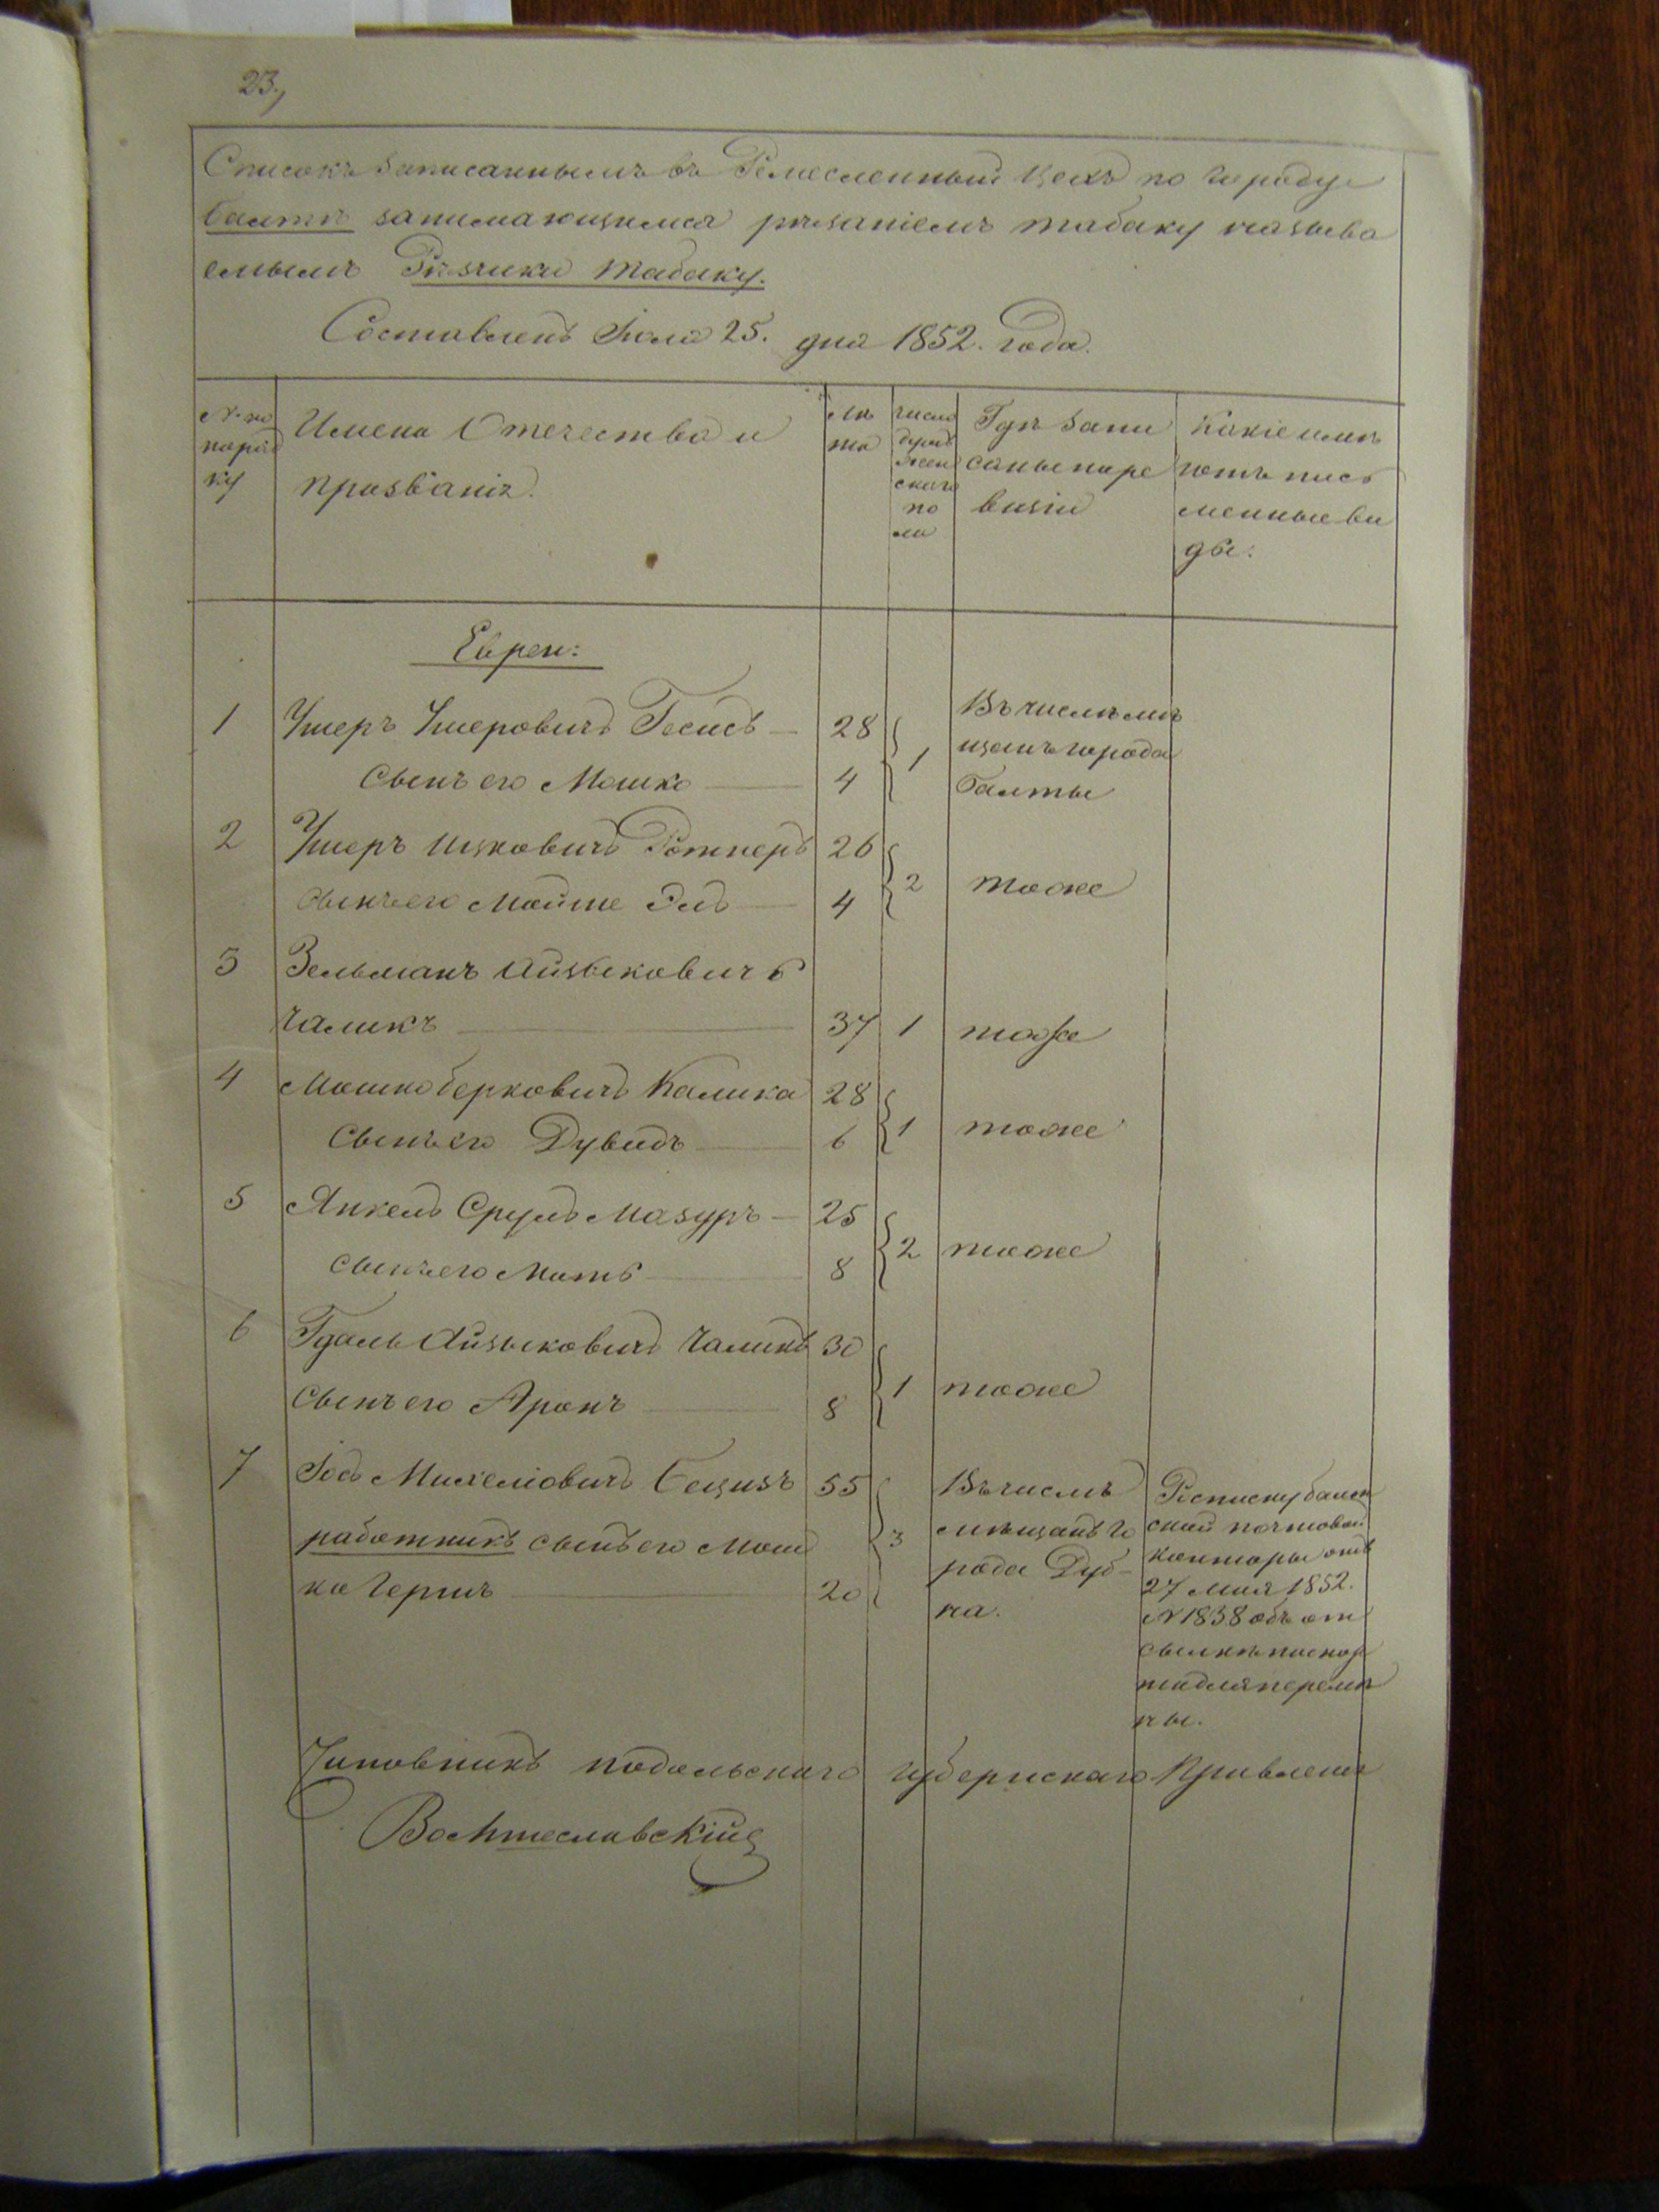 23.
Списокъ записаннымъ въ Ремесленный цехъ по городу
Балтѣ занимающимся рѣзаніемъ табаку называ
емымъ Рѣзчики табаку.
Составленъ Іюля 25. дня 1852. года.
№ по
поряд
ку
Имена Отечества и
прозваніе.
лѣ
та
число
душъ
жен
скаго
по
ла
Гдѣ запи
саны по ре
визіи
Какіе имѣ
ютъ пись
менные ви
ды:
Евреи:
1 Ушеръ Ушеровичъ Гесисъ 28 1 Въ числѣ мѣ
щанъ города
сынъ его Мошко 4 Балты
2 Ушеръ Ицковичъ Ротнеръ 26 2 тоже
сынъ его Мойше Эль 4
3 Зельманъ Айзыковичъ
Чаликъ 37 1 тоже
4 Мошко Берковичъ Калика 28 1 тоже
сынъ его Дувидъ 6
5 Янкель Сруль Мазуръ 25 2 тоже
сынъ его Моть 8
6 Гдаль Айзыковичъ Чаликъ 30 1 тоже
сынъ его Аронъ 8
7 Іось Михеліовичъ Бецизъ 55 3 Въ числѣ
мѣщанъ го
рода Дуб-
на.
работникъ сынъ его Мош
ко Герш 20
Росписку балт
ской почтовой
конторы отъ
27 Мая 1852.
№ 1838 объ от
сылкѣ паспор
та для перемѣ
ны.
Чиновникъ Подольскаго Губернскаго Правленія